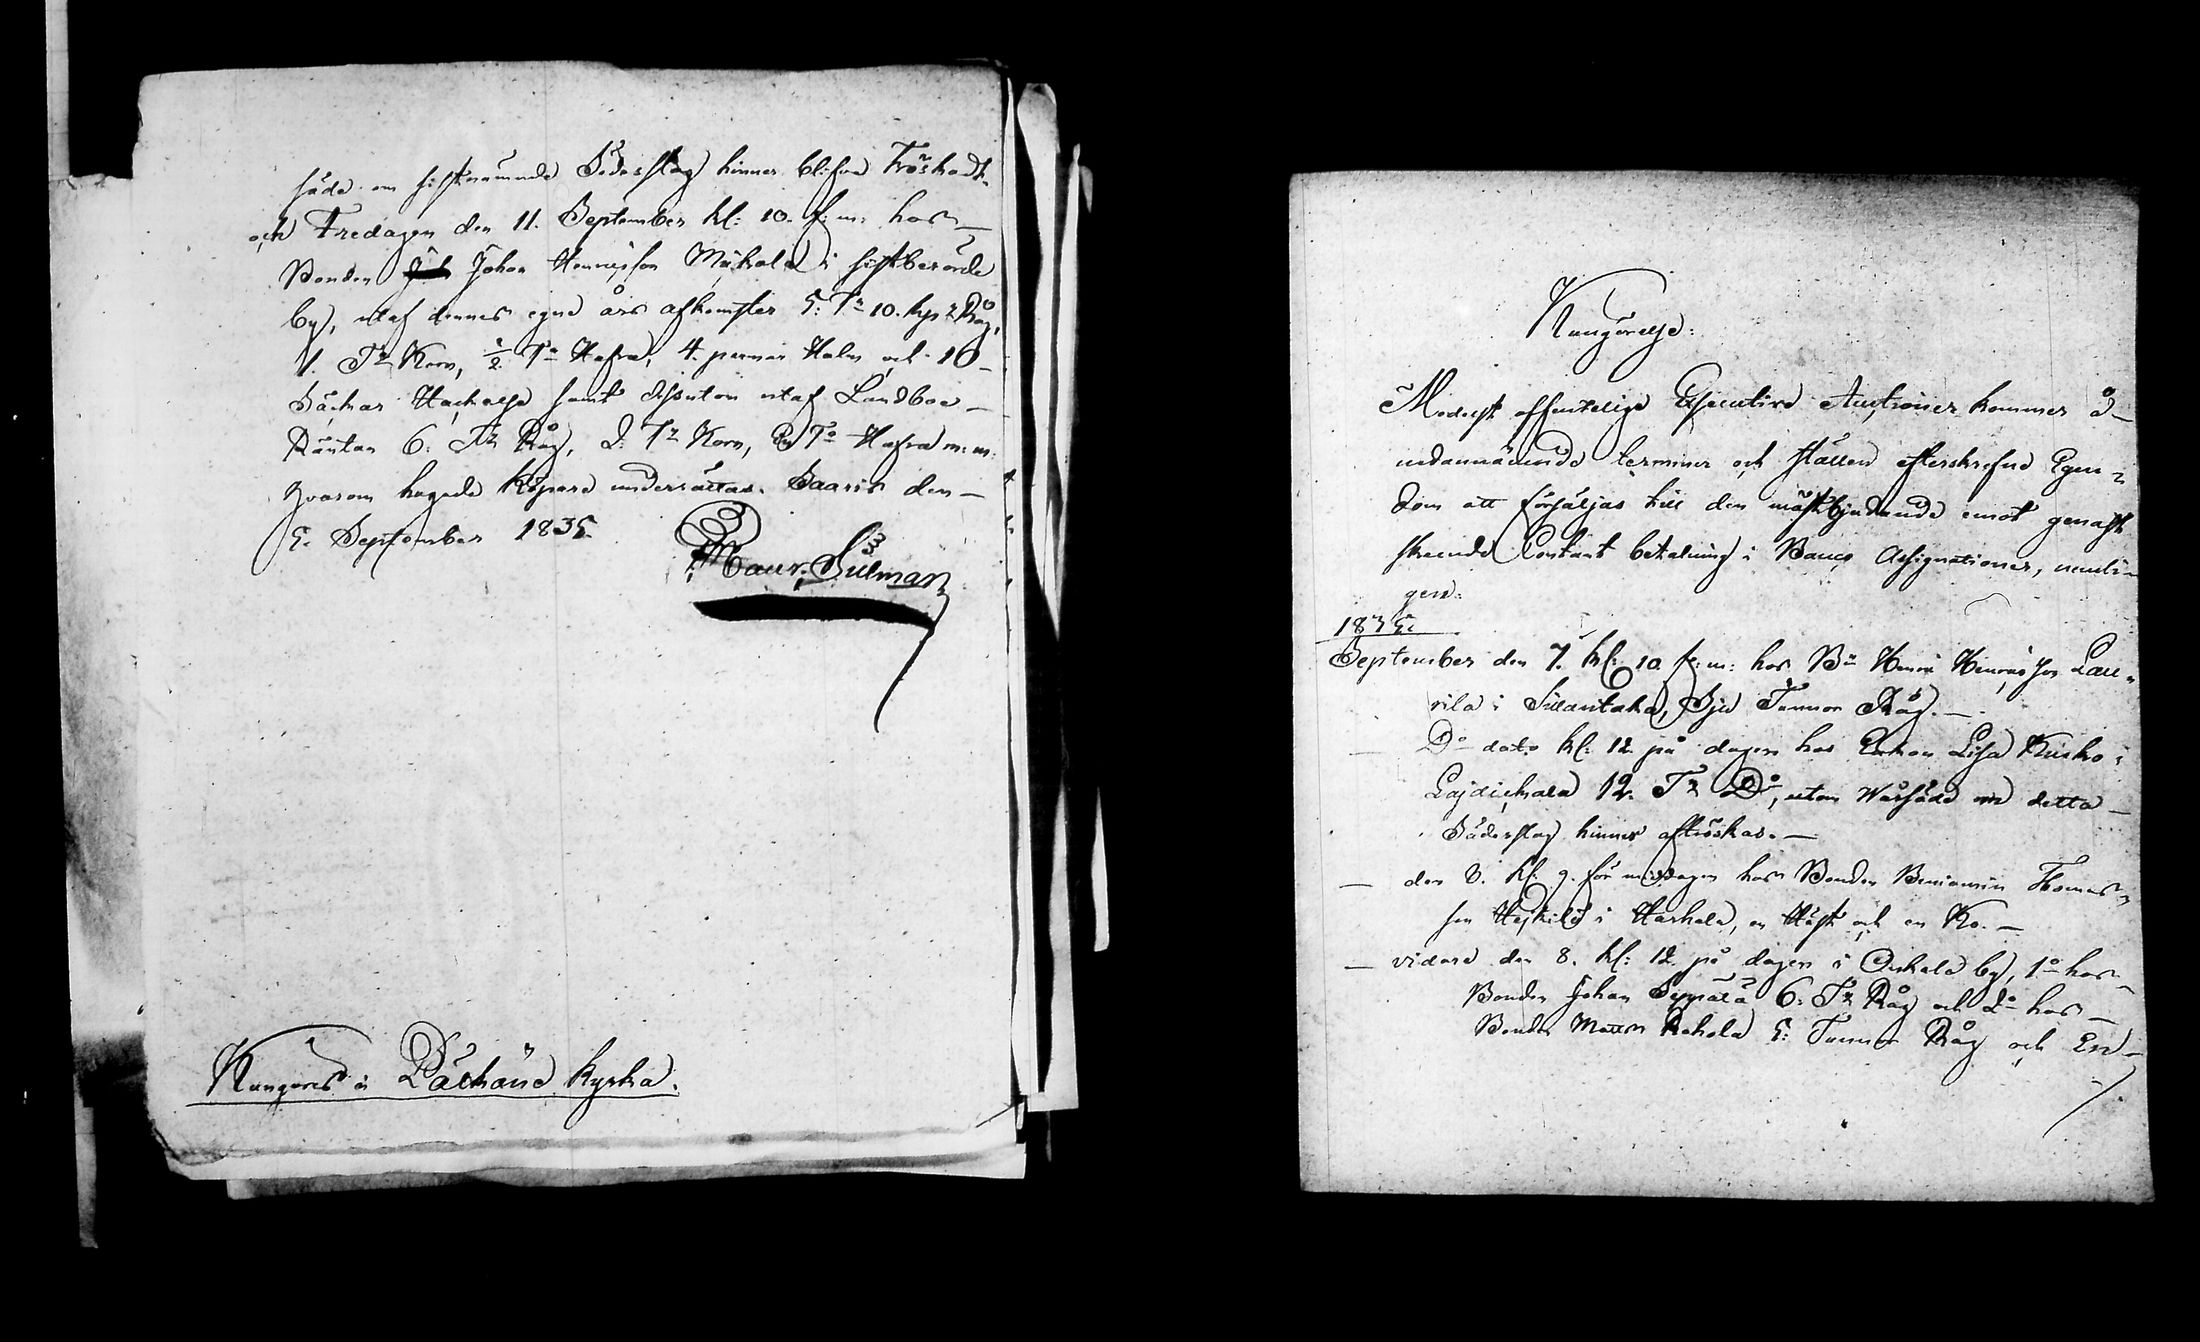 såde om sistnämnde Sädesslag hinner blifva Tröskadt.
och Fredagen den 11. September kl: 10. f: m: hos
Bonden Johan Henricsson Mickola i sistberörde
by, utaf dennes egne års afkomster 5: Tr 10. kpr Råg,
1. Tr Korn, ½ Ta Hafra, 4. parmar Halm och 10
Säckar Hackelse samt dessutom utaf Landboe
Räntan 6. Tr Råg, 2: Tr Korn, Ta Hafra m: m:
hvarom hugade Köpare underrättas. Saaris den
5. September 1835.
Maur. Silman
Kungöres i Pälkäne kyrka.
Kungörelse:
Medelst offentelige Executive Auctioner kommer å
nedannämnde terminer och ställen efterskrefne Egen=
dom att försäljas till den mästbjudande emot genast
skeende Contant betalning i Banco Assignationer, nemli=
gen:
1835.
September den 7. kl: 10. f: m: hos Bn Henric Henricsson Lau=
rila i Sillantaka, Sju Tunnor Råg.
— Do dato kl: 12. på dagen hos Enkan Lisa Kusko i
Lajdickala 12. Tr Do, utom Wårsäde om detta
Sädesslag hinner aftröskas.
— den 8. kl: 9. för middagen hos Bonden Beniamin Thomas=
son Hejkilä i Harhala, en Häst och en Ko.
— vidare den 8. kl: 12. på dagen i Onkala by, 1o hos
Bonden Johan Seppälä 6: Tr Råg och 2o hos
Bonden Matts Rekola 5: Tunnor Råg och En